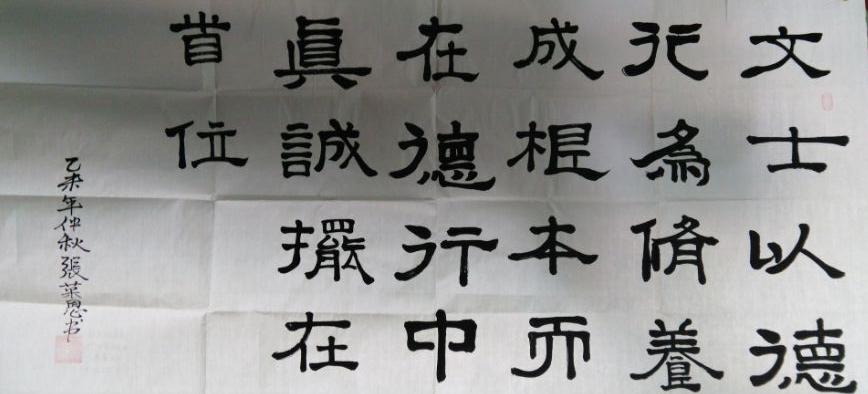 文士以德
行為脩養
成根本而
在德行中
真誠擺在
首位
乙未年仲秋張業恩书